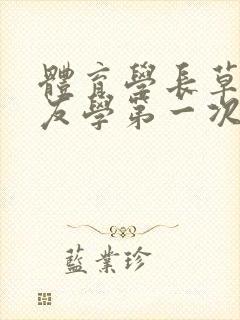 體育學長草
友學第一次
藍業珍